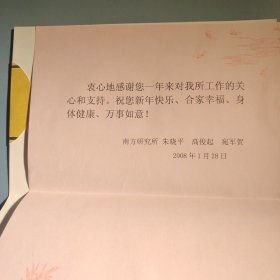 衷心地感谢您一年来对我所工作的关
心和支持。祝您新年快乐、合家幸福、身
体健康、万事如意！
南方研究所 朱晓平 高俊起 宛军贺
2008年1月28日